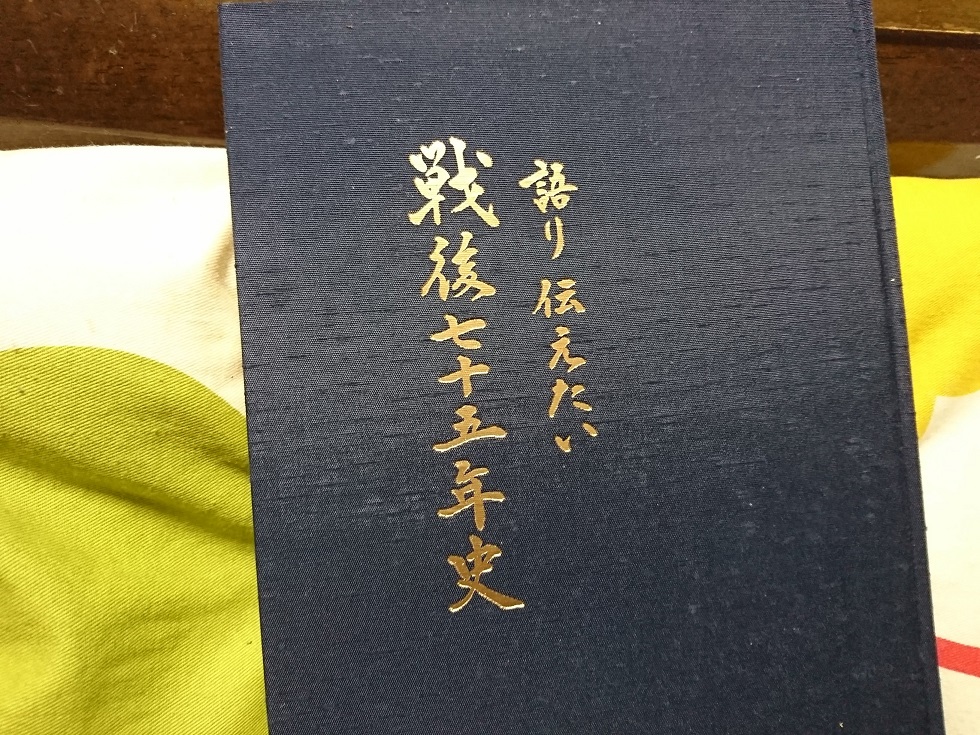 語り伝えたい
戦後七十五年史